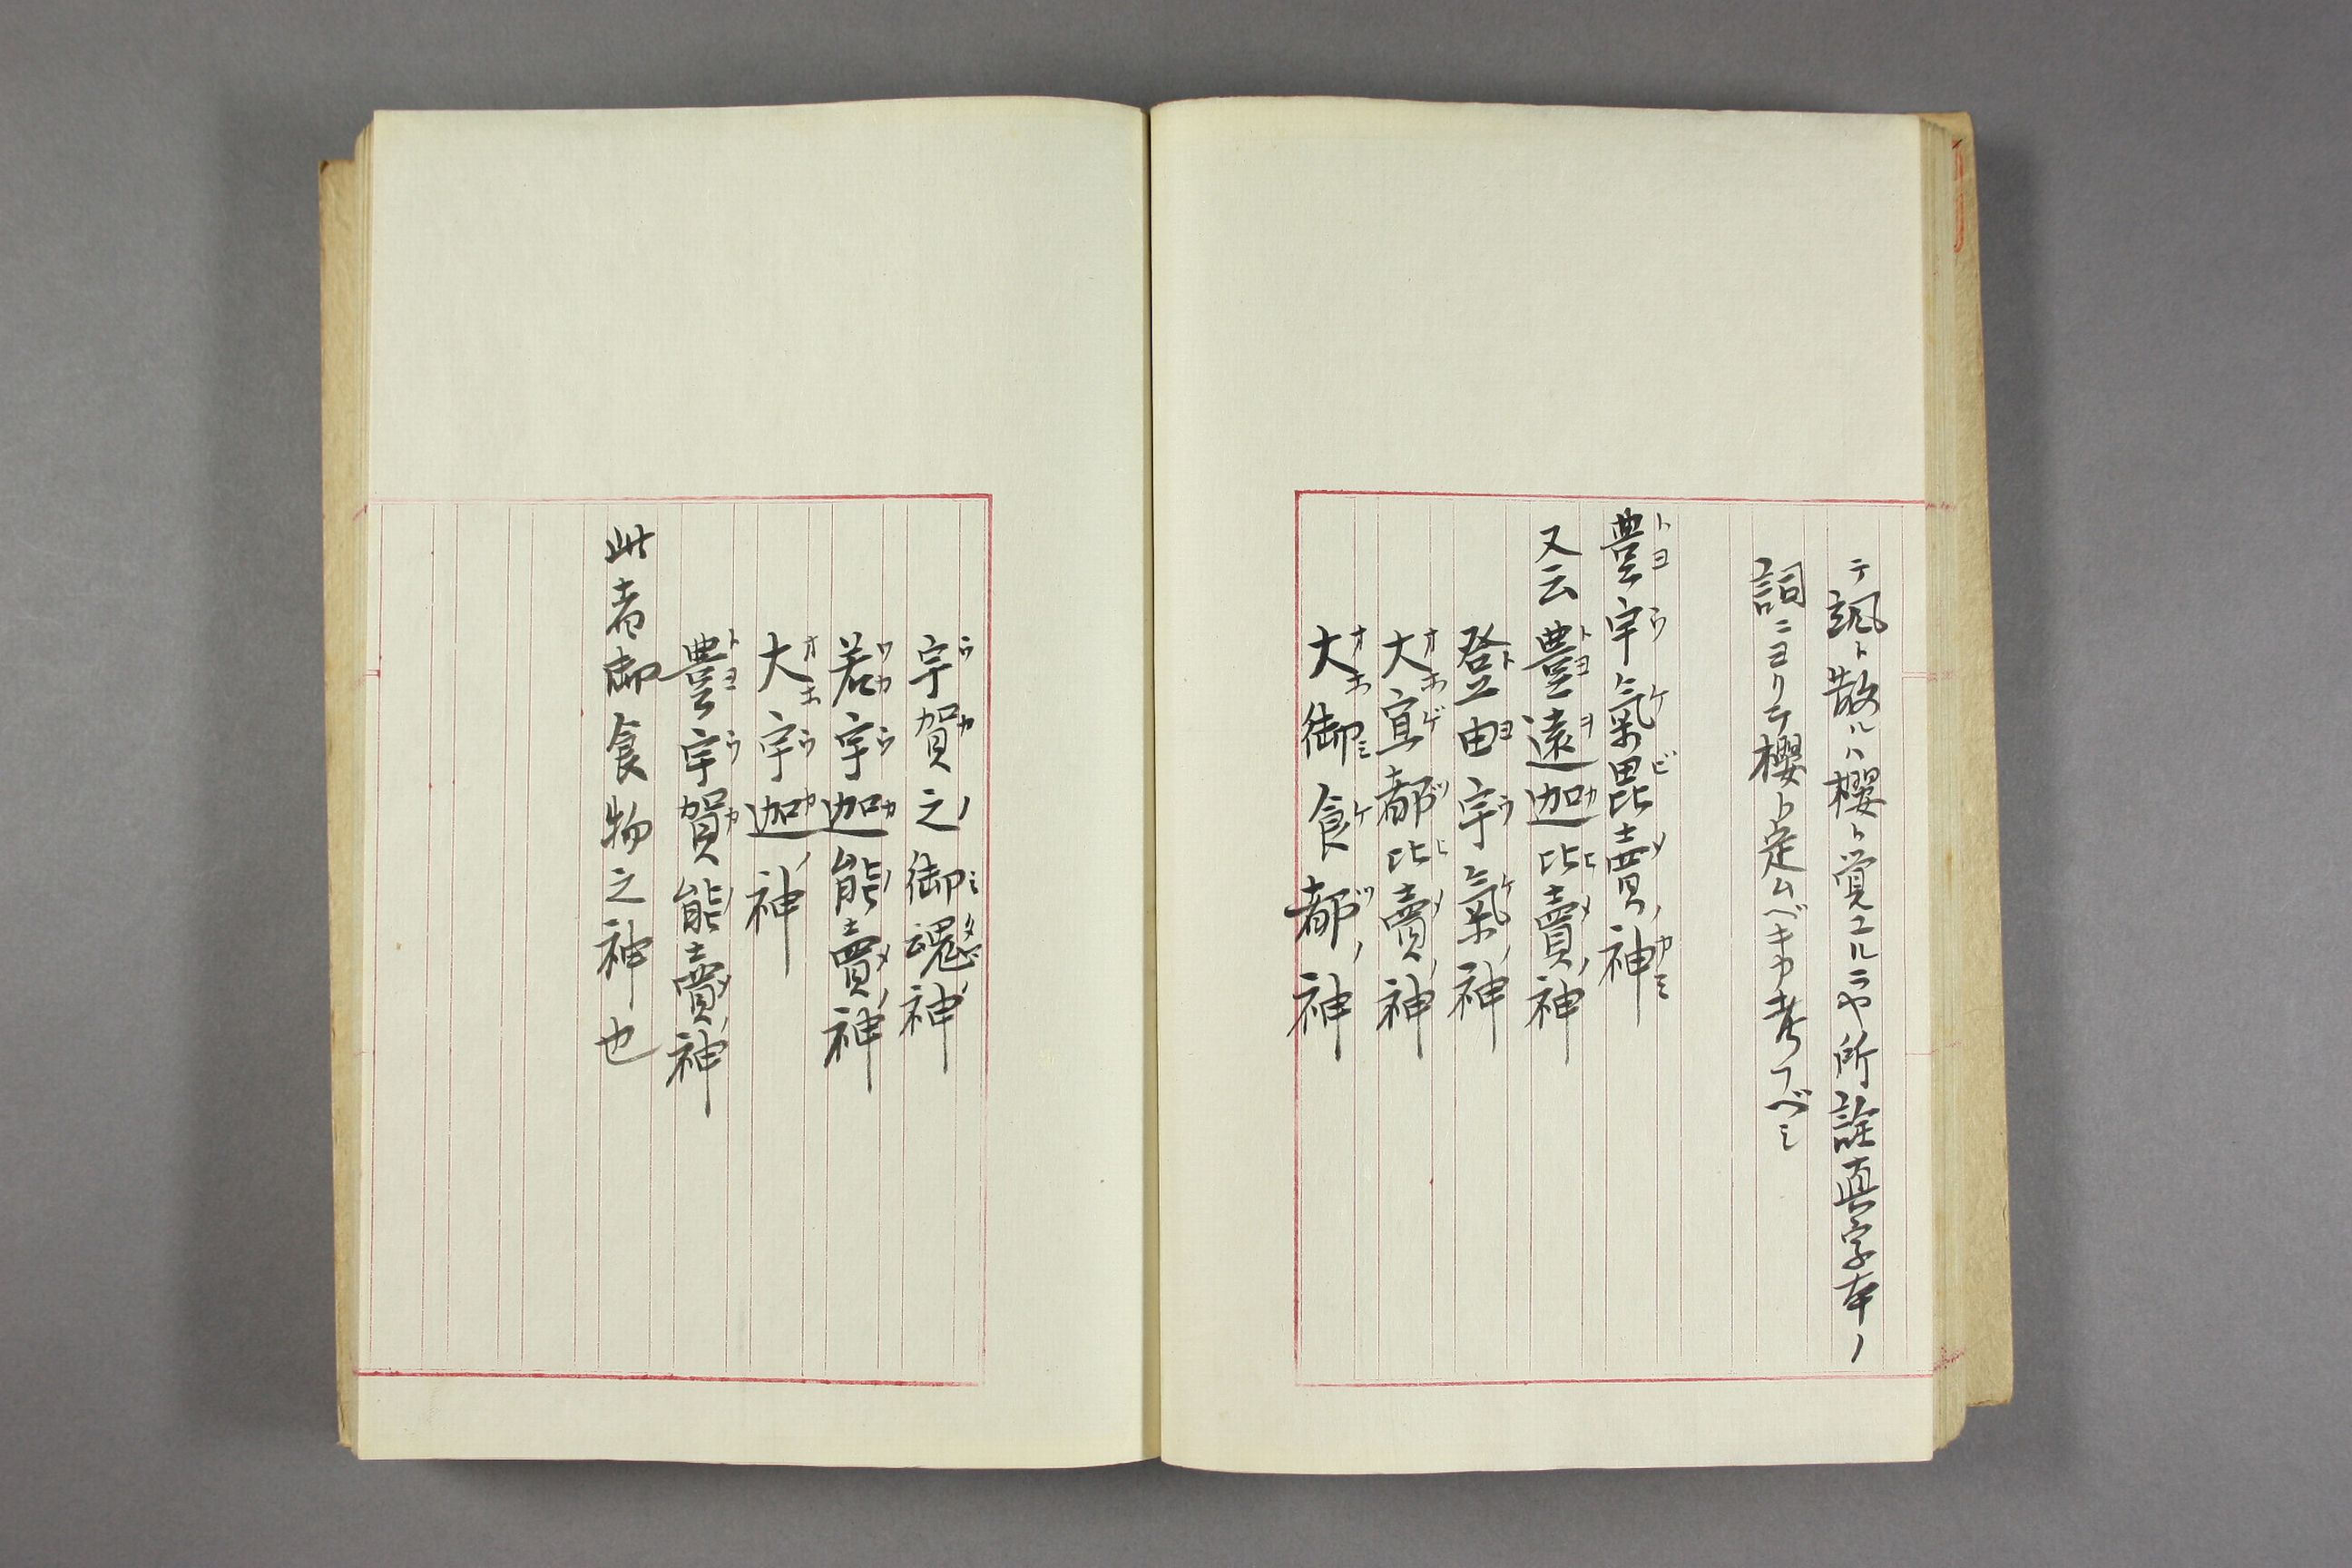 テ颯ト散ルハ櫻ト覚エルニや所詮真字本ノ
詞ニヨリテ櫻ト定ムベキカ考フベシ
豊宇氣毘賣ノ神
又云豊遠迦比賣ノ神
登由宇氣ノ神
大宜都比賣ノ神
大御食都ノ神
宇賀之御魂ノ神
若宇迦能賣ノ神
大宇迦ノ神
豊宇賀能賣ノ神
此者御食物之神也